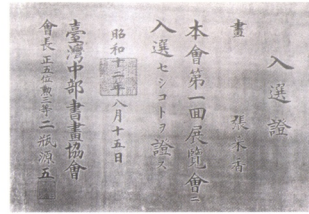 入選證
畫 張木香
本會第一回展覽會ニ
入選セシコトヲ證ス
昭和十二年八月十五日
臺灣中部書畫協會
會長 正五位勲三等 二瓶源五